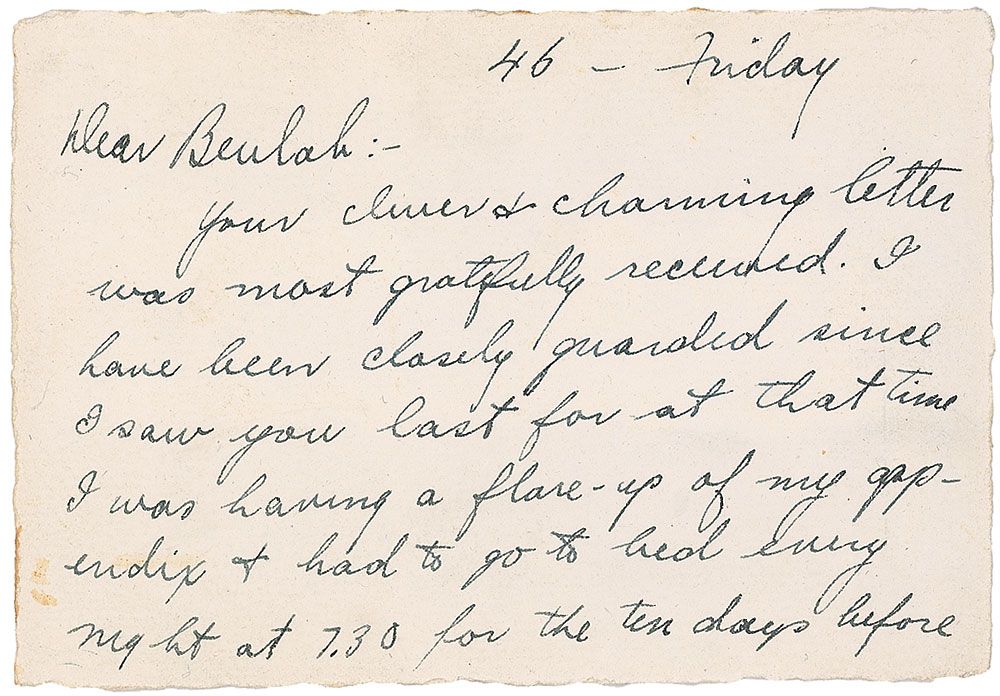 46 – Friday
Dear Beulah:-
Your clever & charming letter
was most gratefully received. I
have been closely guarded since
I saw you last for at that time
I was having a flare-up of my app-
endix & had to go to bed every
night at 7.30 for the ten days before